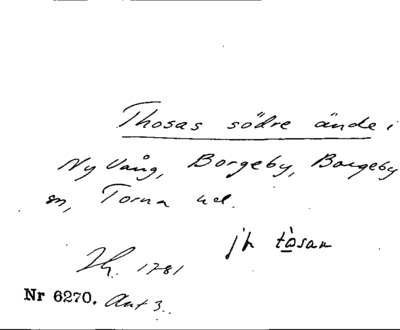 Thosas södre ände i
Ny Vång, Borgeby, Borgeby
sn, Torna hd.
jh tòsan
1781
Nr 6270. Akt 3.